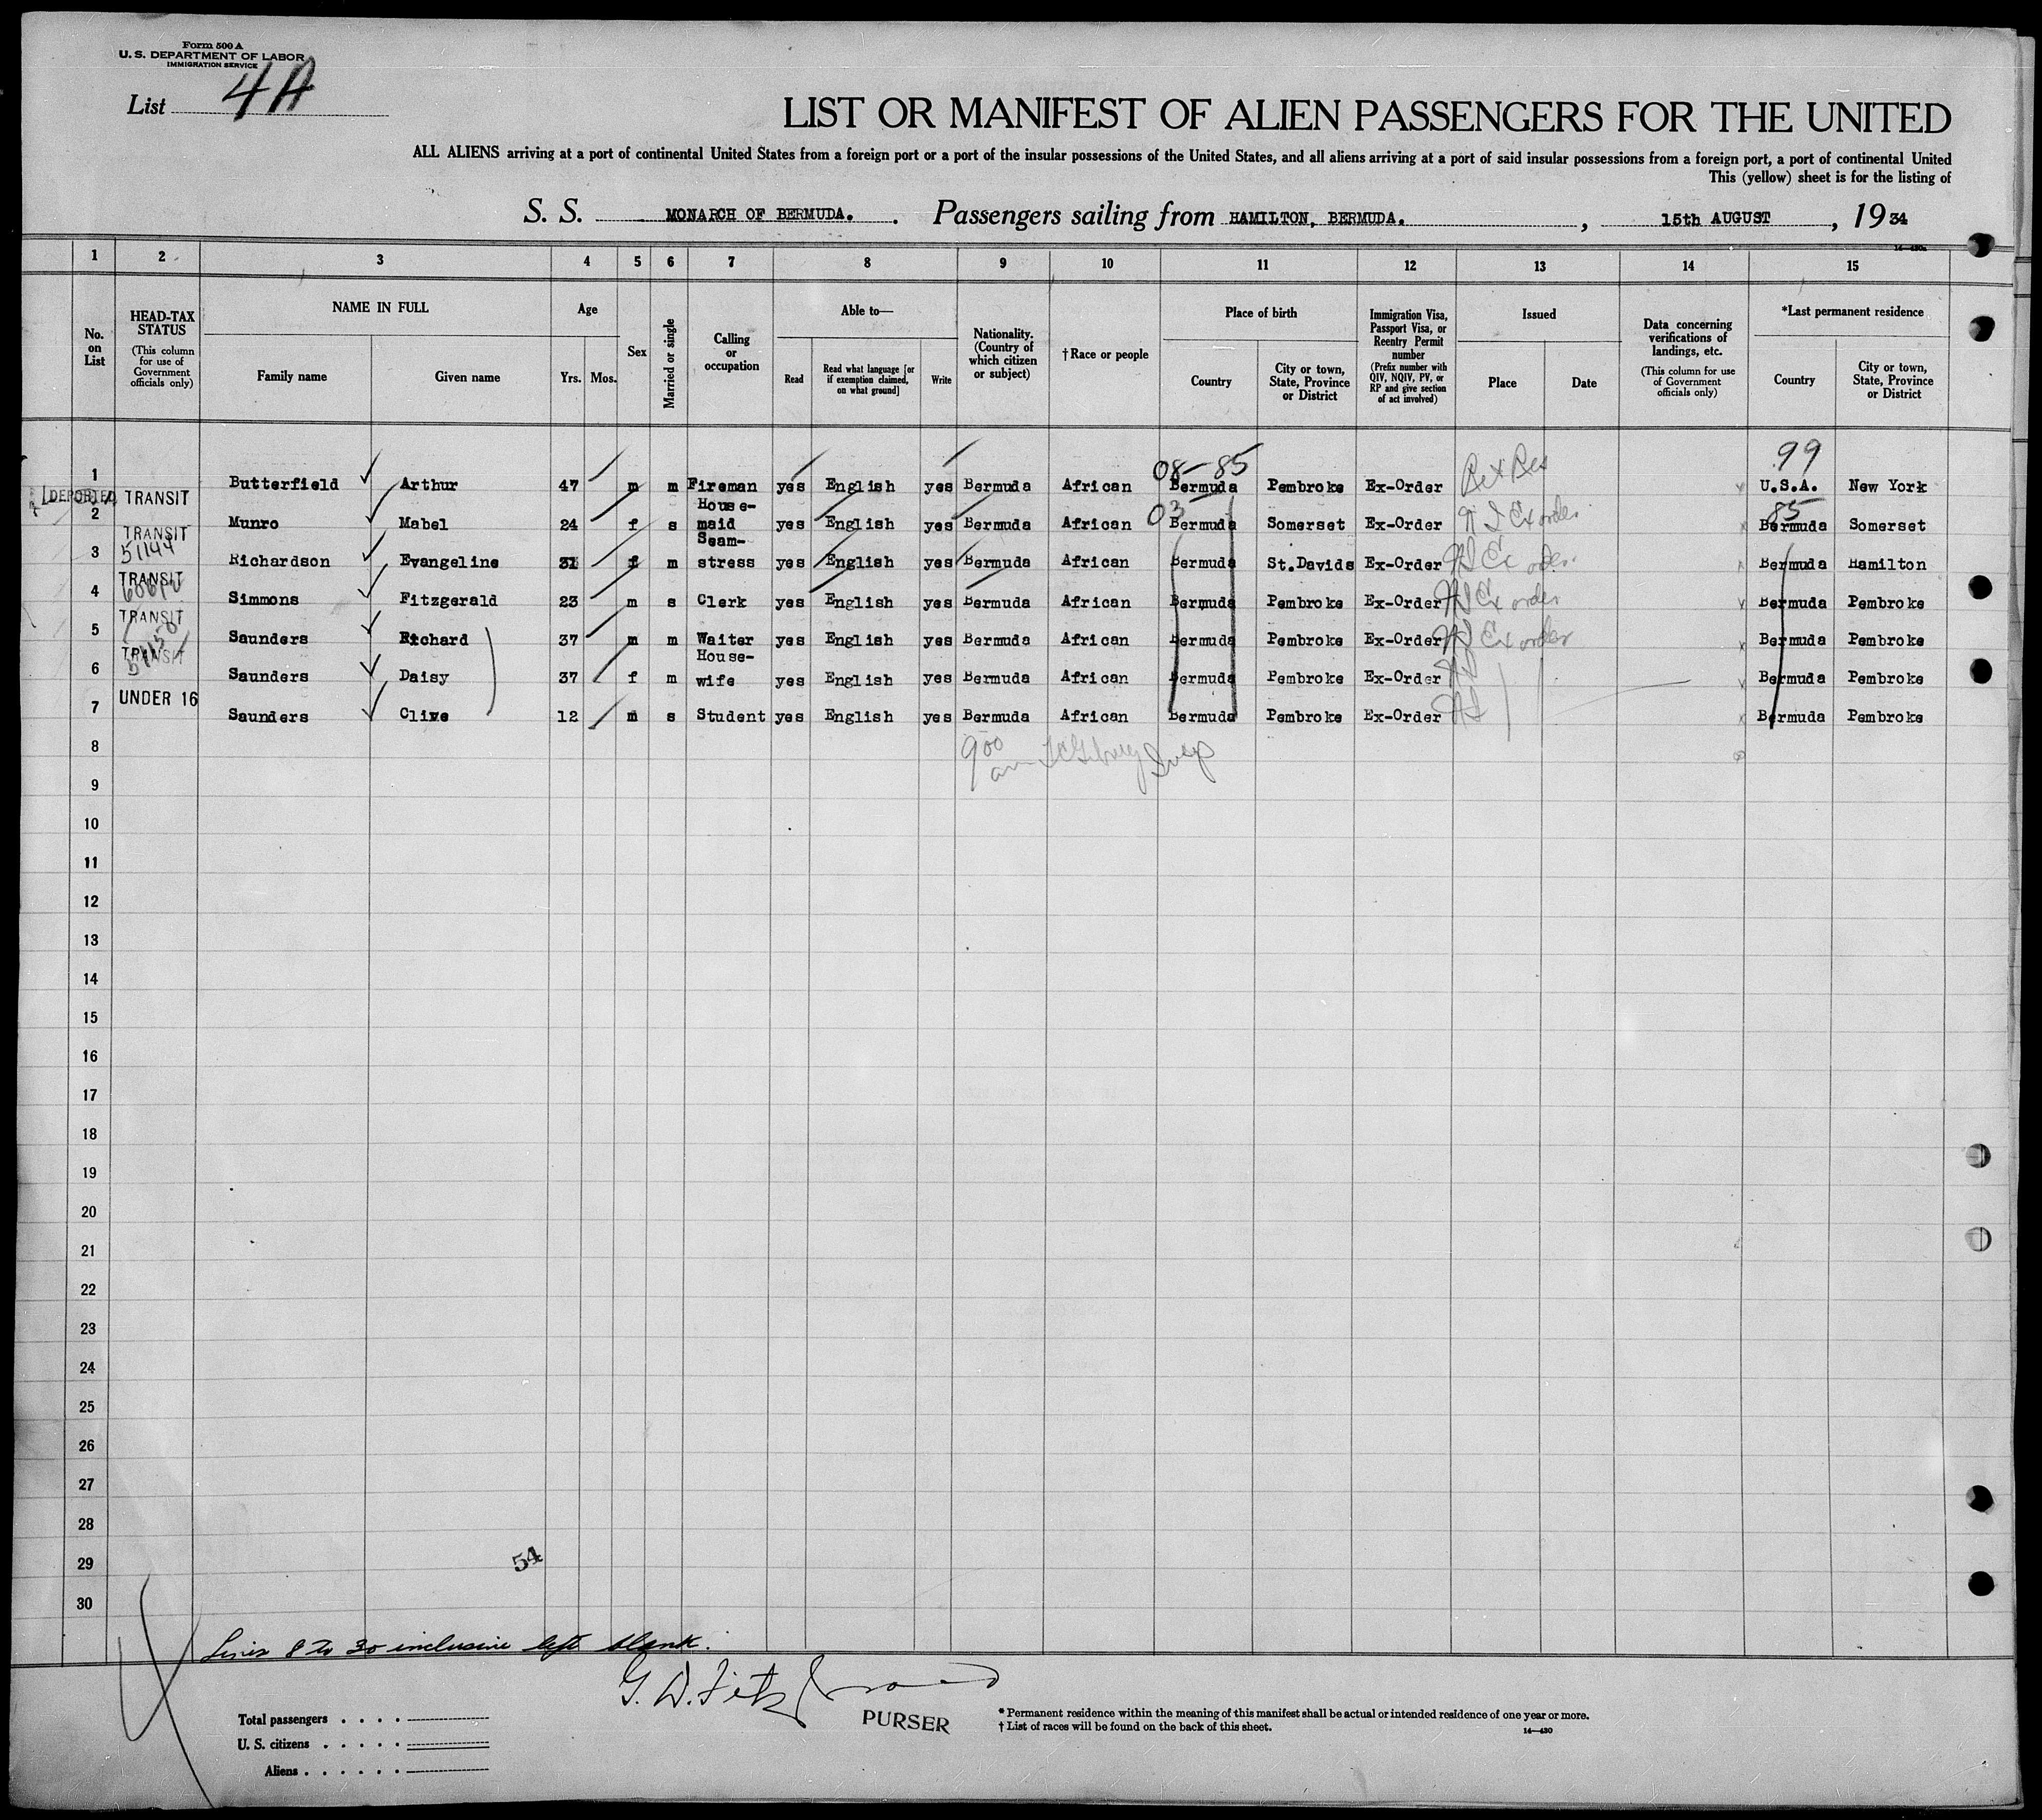 Form 500 A
U. S. DEPARTMENT OF LABOR
IMMIGRATION SERVICE
List 4A
LIST OR MANIFEST OF ALIEN PASSENGERS FOR THE UNITED
ALL ALIENS arriving at a port of continental United States from a foreign port or a port of the insular possessions of the United States, and all aliens arriving at a port of said insular possessions from a foreign port, a port of continental United
This (yellow) sheet is for the listing of
S. S. MONARCH OF BERMUDA. Passengers sailing from HAMILTON, BERMUDA. , 15th AUGUST , 19 34
1 2 3 4 5 6 7 8 9 10 11 12 13 14 15
No. on List
HEAD-TAX STATUS
(This column for use of Government officials only)
NAME IN FULL
Family name Given name
Age
Yrs. Mos.
Sex
Married or single
Calling or occupation
Able to—
Read
Read what language [or if exemption claimed, on what ground]
Write
Nationality. (Country of which citizen or subject)
†Race or people
Place of birth
Country
City or town, State, Province or District
Immigration Visa, Passport Visa, or Reentry Permit number
(Prefix number with QIV, NQIV, PV, or RP and give section of act involved)
Issued
Place Date
Data concerning verifications of landings, etc.
(This column for use of Government officials only)
*Last permanent residence
Country
City or town, State, Province or District
08-85 99
1 DEPORTED TRANSIT Butterfield Arthur 47 m m Fireman yes English yes Bermuda African Bermuda Pembroke Ex-Order U.S.A. New York
03 85
2 TRANSIT Munro Mabel 24 f s House-maid yes English yes Bermuda African Bermuda Somerset Ex-Order Ex order Bermuda Somerset
51144
3 TRANSIT Richardson Evangeline 31 f m Seam-stress yes English yes Bermuda African Bermuda St.Davids Ex-Order Ex order Bermuda Hamilton
4 TRANSIT Simmons Fitzgerald 23 m s Clerk yes English yes Bermuda African Bermuda Pembroke Ex-Order Ex order Bermuda Pembroke
5 TRANSIT Saunders Richard 37 m m Waiter yes English yes Bermuda African Bermuda Pembroke Ex-Order Ex order Bermuda Pembroke
6 Saunders Daisy 37 f m House-wife yes English yes Bermuda African Bermuda Pembroke Ex-Order Bermuda Pembroke
7 UNDER 16 Saunders Clive 12 m s Student yes English yes Bermuda African Bermuda Pembroke Ex-Order Bermuda Pembroke
8 900 am Insp
9
10
11
12
13
14
15
16
17
18
19
20
21
22
23
24
25
26
27
28
29 54
30
Lines 8 to 30 inclusive left blank.
PURSER
Total passengers . . . .
U. S. citizens . . . . .
Aliens . . . . . .
* Permanent residence within the meaning of this manifest shall be actual or intended residence of one year or more.
† List of races will be found on the back of this sheet.
14—430